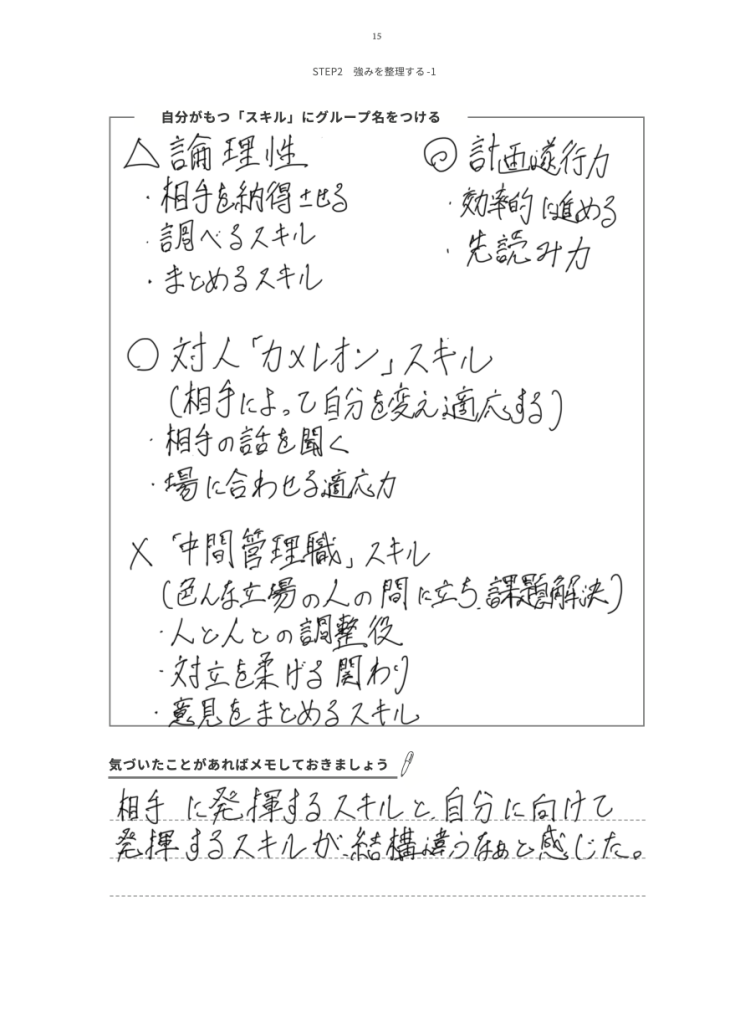 15
STEP2 強みを整理する -1
自分がもつ「スキル」にグループ名をつける
△ 論理性
・相手を納得させる
・調べるスキル
・まとめるスキル
◎ 計画遂行力
・効率的に進める
・先読み力
○ 対人「カメレオン」スキル
(相手によって自分を変え適応する)
・相手の話を聞く
・場に合わせる適応力
× 「中間管理職」スキル
(色んな立場の人の間に立ち、課題解決)
・人と人との調整役
・対立を柔げる関わり
・意見をまとめるスキル
気づいたことがあればメモしておきましょう
相手に発揮するスキルと、自分に向けて
発揮するスキルが、結構違うなぁと感じた。